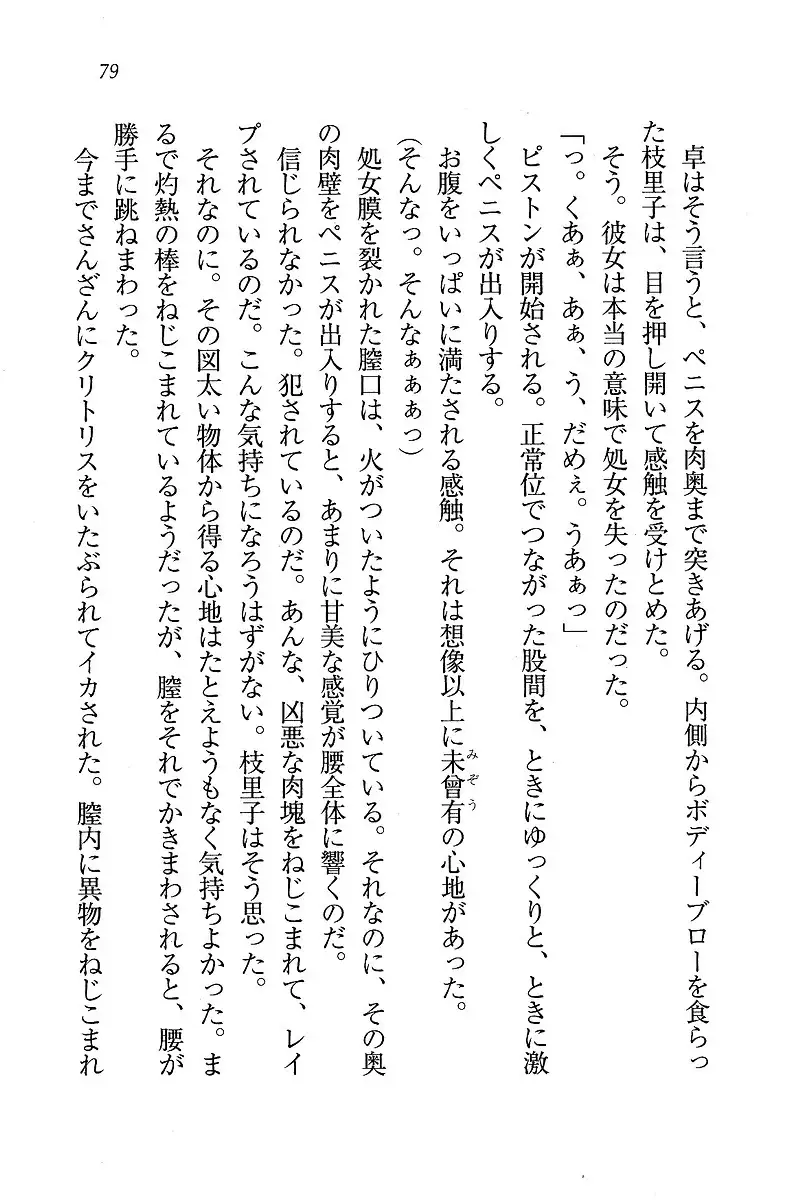 79
卓はそう言うと、ペニスを肉奥まで突きあげる。内側からボディーブローを食らっ
た枝里子は、目を押し開いて感触を受けとめた。
そう。彼女は本当の意味で処女を失ったのだった。
「っ。くあぁ、あぁ、う、だめぇ。うあぁっ」
ピストンが開始される。正常位でつながった股間を、ときにゆっくりと、ときに激
しくペニスが出入りする。
お腹をいっぱいに満たされる感触。それは想像以上に未曾有の心地があった。
みぞう
(そんなっ。そんなぁぁぁっ)
処女膜を裂かれた膣口は、火がついたようにひりついている。それなのに、その奥
の肉壁をペニスが出入りすると、あまりに甘美な感覚が腰全体に響くのだ。
信じられなかった。犯されているのだ。あんな、凶悪な肉塊をねじこまれて、レイ
プされているのだ。こんな気持ちになろうはずがない。枝里子はそう思った。
それなのに。その図太い物体から得る心地はたとえようもなく気持ちよかった。ま
るで灼熱の棒をねじこまれているようだったが、膣をそれでかきまわされると、腰が
勝手に跳ねまわった。
今までさんざんにクリトリスをいたぶられてイカされた。膣内に異物をねじこまれ